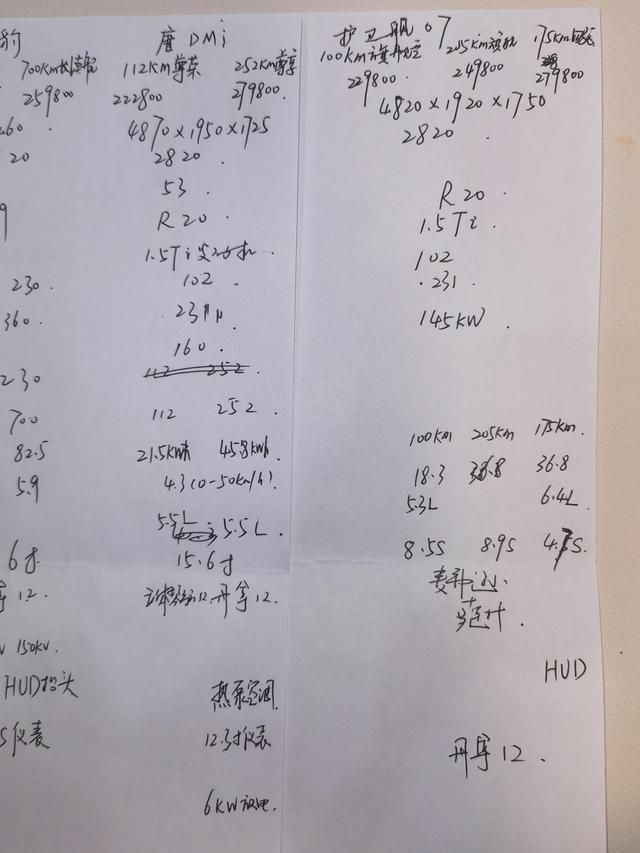 豹 唐 DMi 护卫舰 07
700Km 112KM尊荣 252KM尊享 100KM旗舰 205Km旗舰 175Km
259800 222800 279800. 229800 249800 279800
4870×1950×1725 4820×1920×1750
260.
20 2820. 2820.
53.
R 20. R 20.
9
1.5Ti发动机. 1.5Ti.
230. 102. 102
231 .231.
360. 145KW.
160.
230
700 112 252. 100Km 205Km 175Km.
82.5 21.5KWh 45.8KWh. 18.3 36.8 36.8
5.9 4.3(0-50Km/h). 5.3L 6.4L
5.5L 5.5L.
6寸 15.6寸 8.5S 8.9S 4.7S.
12. 丹拿12. 麦弗逊.
150KV.
HUD抬头 热泵空调 HUD
仪表 12.3寸仪表 丹拿12.
6KW放电.